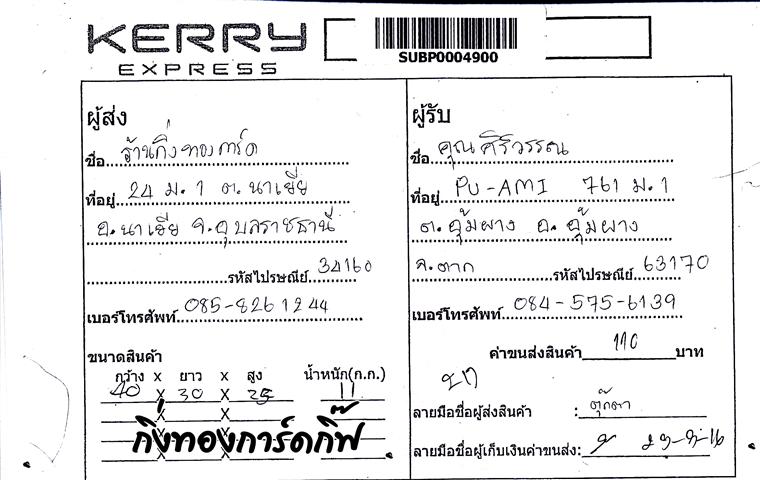 KERRY
EXPRESS
SUBP0004900
ผู้ส่ง
ชื่อ ร้านกิ่งทองการ์ด
ที่อยู่ 24 ม.1 ต.นาเยีย
อ.นาเยีย จ.อุบลราชธานี
รหัสไปรษณีย์ 34160
เบอร์โทรศัพท์ 085-826 1244
ขนาดสินค้า
กว้าง x ยาว x สูง น้ำหนัก(ก.ก.)
40 x 30 x 25 11
x x
x x
x x
กิ่งทองการ์ดกิ๊ฟ
ผู้รับ
ชื่อ คุณศิริวรรณ
ที่อยู่ PU-AMI 761 ม.1
ต.อุ้มผาง อ.อุ้มผาง
จ.ตาก รหัสไปรษณีย์ 63170
เบอร์โทรศัพท์ 084-575-6139
ค่าขนส่งสินค้า 110 บาท
ลายมือชื่อผู้ส่งสินค้า : ตุ๊กตา
ลายมือชื่อผู้เก็บเงินค่าขนส่ง: